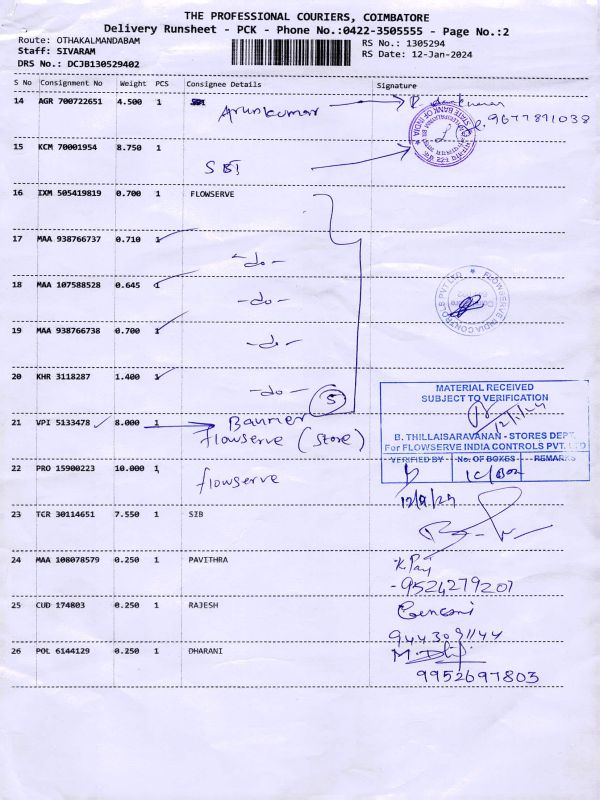 THE PROFESSIONAL COURIERS, COIMBATORE
Delivery Runsheet - PCK - Phone No.:0422-3505555 - Page No.:2
Route: OTHAKALMANDABAM
RS No.: 1305294
Staff: SIVARAM
RS Date: 12-Jan-2024
DRS No.: DCJB130529402
S No Consignment No Weight PCS Consignee Details Signature
14 AGR 700722651 4.500 1 Arunkumar
9677891038
STATE BANK OF INDIA
15 KCM 70001954 8.750 1
SBI
16 IXM 505419819 0.700 1 FLOWSERVE
17 MAA 938766737 0.710 1
-do-
18 MAA 107588528 0.645 1
-do-
FLOWSERVE INDIA CONTROLS PVT LTD
19 MAA 938766738 0.700 1
-do-
20 KHR 3118287 1.400 1
-do- 5
MATERIAL RECEIVED
SUBJECT TO VERIFICATION
12/1/24
B. THILLAISARAVANAN - STORES DEPT.
For FLOWSERVE INDIA CONTROLS PVT. LTD
VERIFIED BY No. OF BOXES REMARKS
21 VPI 5133478 8.000 1
flowserve (store)
22 PRO 15900223 10.000 1 flowserve
23 TCR 30114651 7.550 1 SIB
24 MAA 108078579 0.250 1 PAVITHRA
-9524279207
25 CUD 174803 0.250 1 RAJESH
26 POL 6144129 0.250 1 DHARANI
9952697803